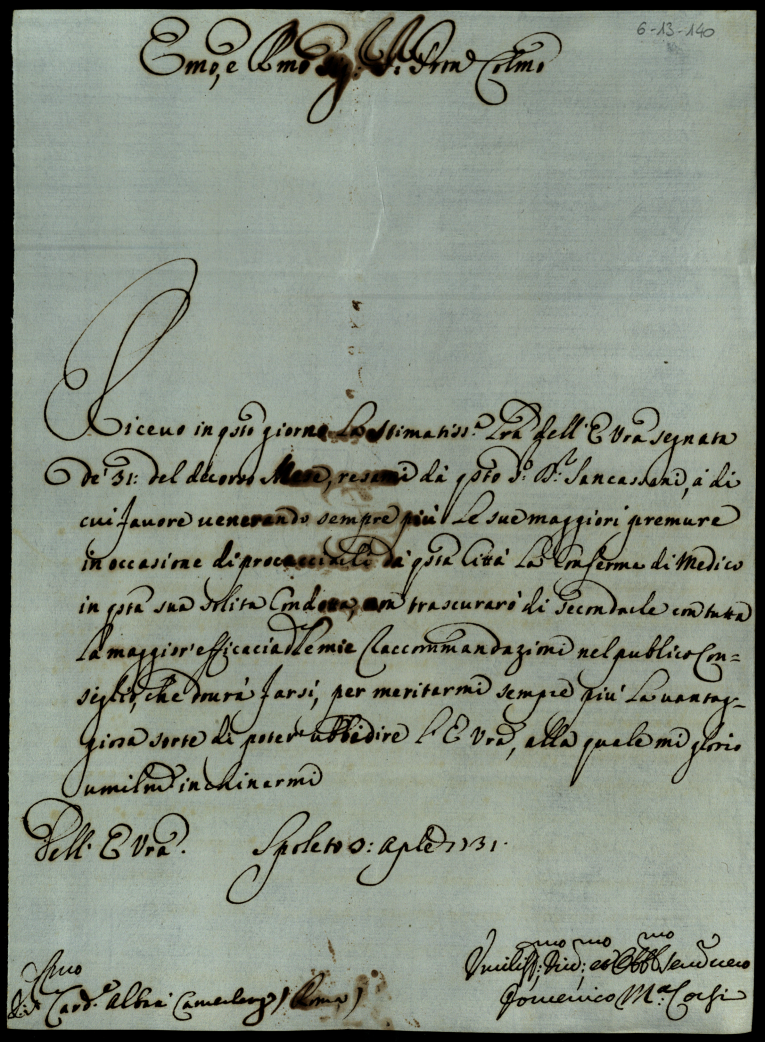 6-13-140
Emo, e Rmo Sig: Sig: Pron Colmo
Ricevo in qsto giorno la stimatiss:a Lra dell' E Vra segnata
de' 31: del decorso Mese, resami dà qsto S:r D:r Sancassani, à di
cui favore venerando sempre più le sue maggiori premure
in occasione di procacciarli dà qsta Città la Conferma di Medico
in qsta sua solita Condotta, non trascurarò di secondarle con tutta
la maggior' efficacia le mie Raccommandazioni nel publico Con=
siglio, che dourà farsi, per meritarmi sempre più la vantag=
giosa sorte di poter' ubbidire l' E Vra, alla quale mi glorio
umilmte inchinarmi
Dell' E Vra. Spoleto Aple 1731.
Card:e Albani Camerlengo (Roma)
Umiliss:mo Div:mo et Obb:mo Servre vero
Domenico M:a Corsi